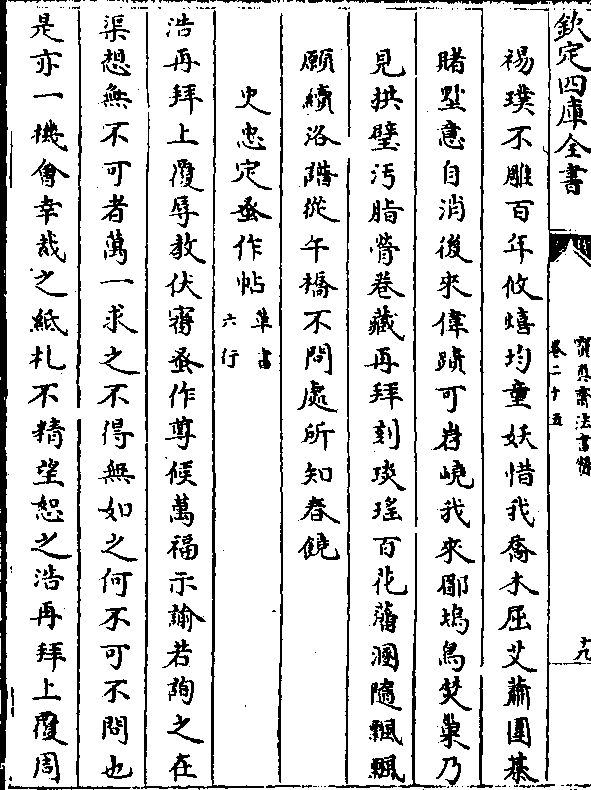 欽定四庫全書
寶真齋法書贊
卷二十五
十九
裼璞不雕百年攸熺均童妖惜我喬木屈艾蕭團棊
賭墅意自消後來偉蹟可岧嶢我來郿塢鳥焚巢乃
見拱璧汚脂膋卷藏再拜刻琰瑤百花藩溷隨飄飄
願續洛階從午橋不問處所知春饒
史忠定蚤作帖草書六行
浩再拜上覆辱教伏審蚤作尊候萬福示諭若陶之在
渠想無不可者萬一求之不得無如之何不可不問也
是亦一機會幸哉之紙札不精望恕之浩再拜上覆周